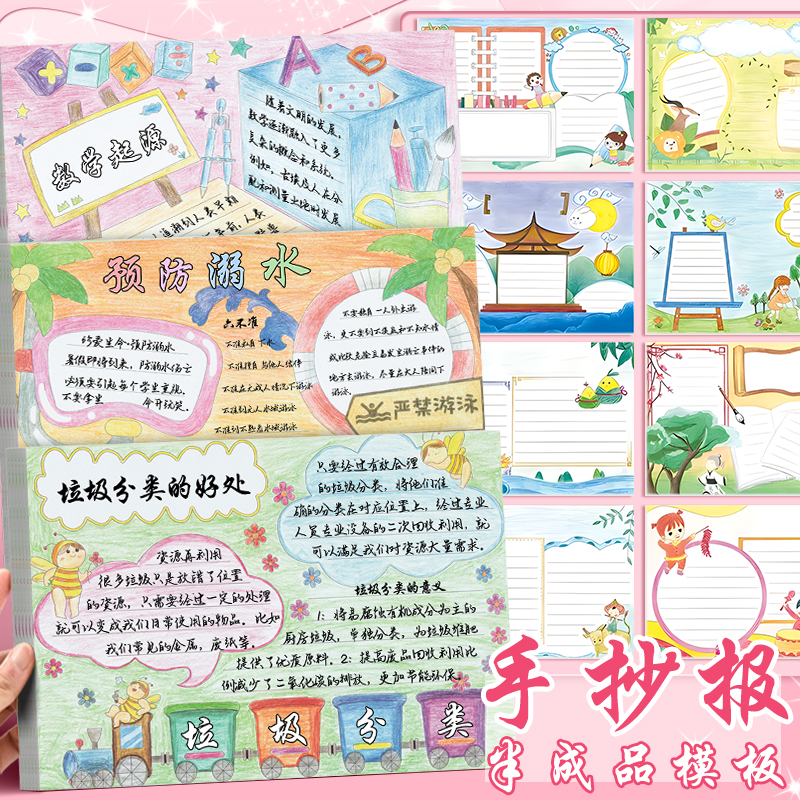 A
B
数学起源
随着文明的发展，
数学逐渐融入了更多
复杂的概念和系统。
例如，古埃及人在分
配和测量土地时发展
追溯到人类早期
年前，人类
预防溺水
珍爱生命·预防溺水
暑假即将到来，防溺水伤亡
必须要引起每个学生重视，
不要拿生命开玩笑。
六不准
不准私自下水
不准擅自与他人结伴
不准在无成人情况下游泳
不准到无人水域游泳
不准到不熟悉水域游泳
不要独自一人外出游
泳，更不要到不摸底和不知水情
或比较危险且易发生溺水事件的
地方去游泳，尽量在大人陪同下
游泳。
严禁游泳
垃圾分类的好处
只要经过有效合理
的垃圾分类，将他们准
确的分类在对应位置上，经过专业
人员专业设备的二次回收利用，就
可以满足我们对资源大量需求。
资源再利用
很多垃圾只是放错了位置
的资源，只需要经过一定的处理
就可以变成我们日常使用的物品。比如
我们常见的金属，废纸等。
垃圾分类的意义
1：将易腐蚀有机成分为主的
厨房垃圾，单独分类，为垃圾堆肥
提供了优质原料。2：提高废品回收利用比
例减少了二氧化碳的排放，更加节能环保。
垃圾分类
手抄报
半成品模板